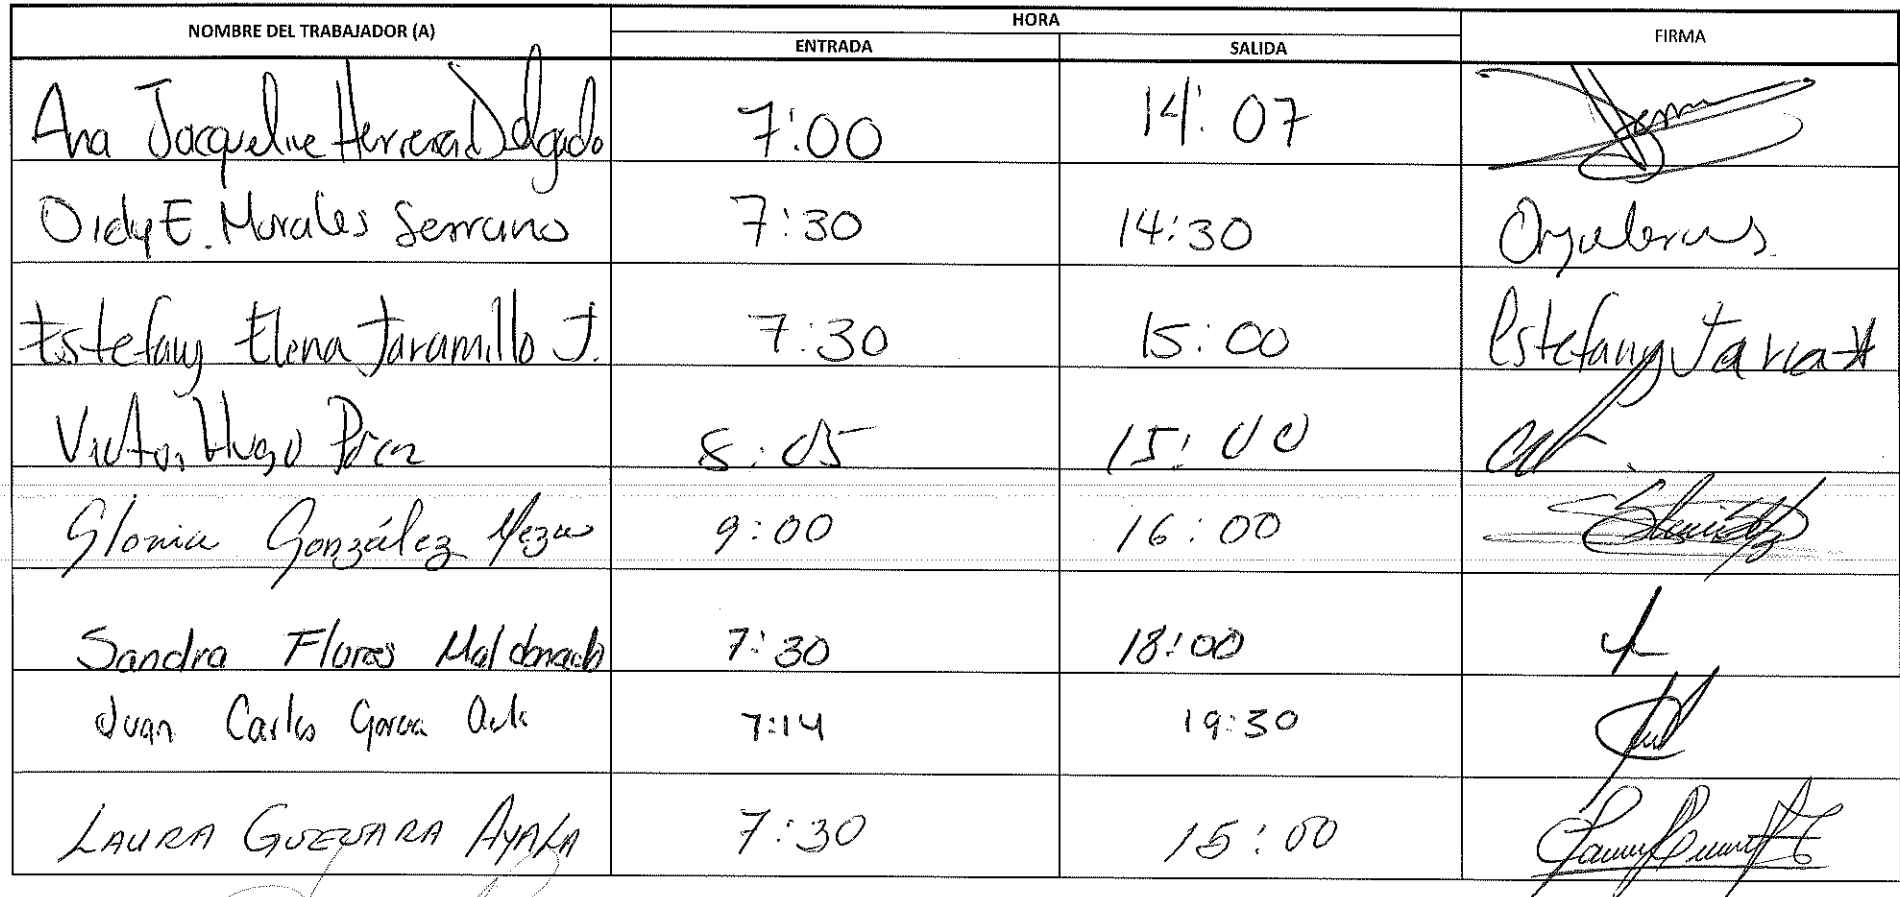 NOMBRE DEL TRABAJADOR (A) HORA FIRMA
ENTRADA SALIDA
Ana Jacqueline Herrera Delgado 7:00 14:07
Oidy E. Morales Serrano 7:30 14:30
Estefany Elena Jaramillo J. 7:30 15:00 Estefany
Victor Hugo 8:05 15:00
Gloria González Meza 9:00 16:00
Sandra Flores Maldonado 7:30 18:00
Juan Carlos Garcia 7:14 19:30
LAURA GUEVARA AYALA 7:30 15:00